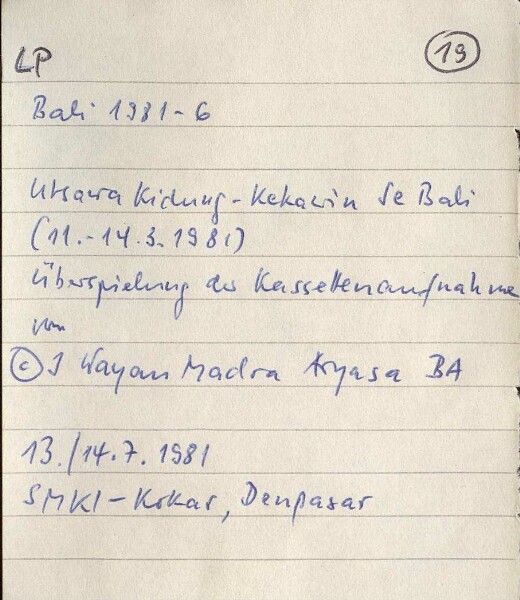 LP
19
Bali 1981-6
Utsawa Kidung-Kekawin Se Bali
(11.-14.3.1981)
Überspielung der Kassettenaufnahme
von
© I Wayan Madra Aryasa BA
13./14.7.1981
SMKI-Kokar, Denpasar